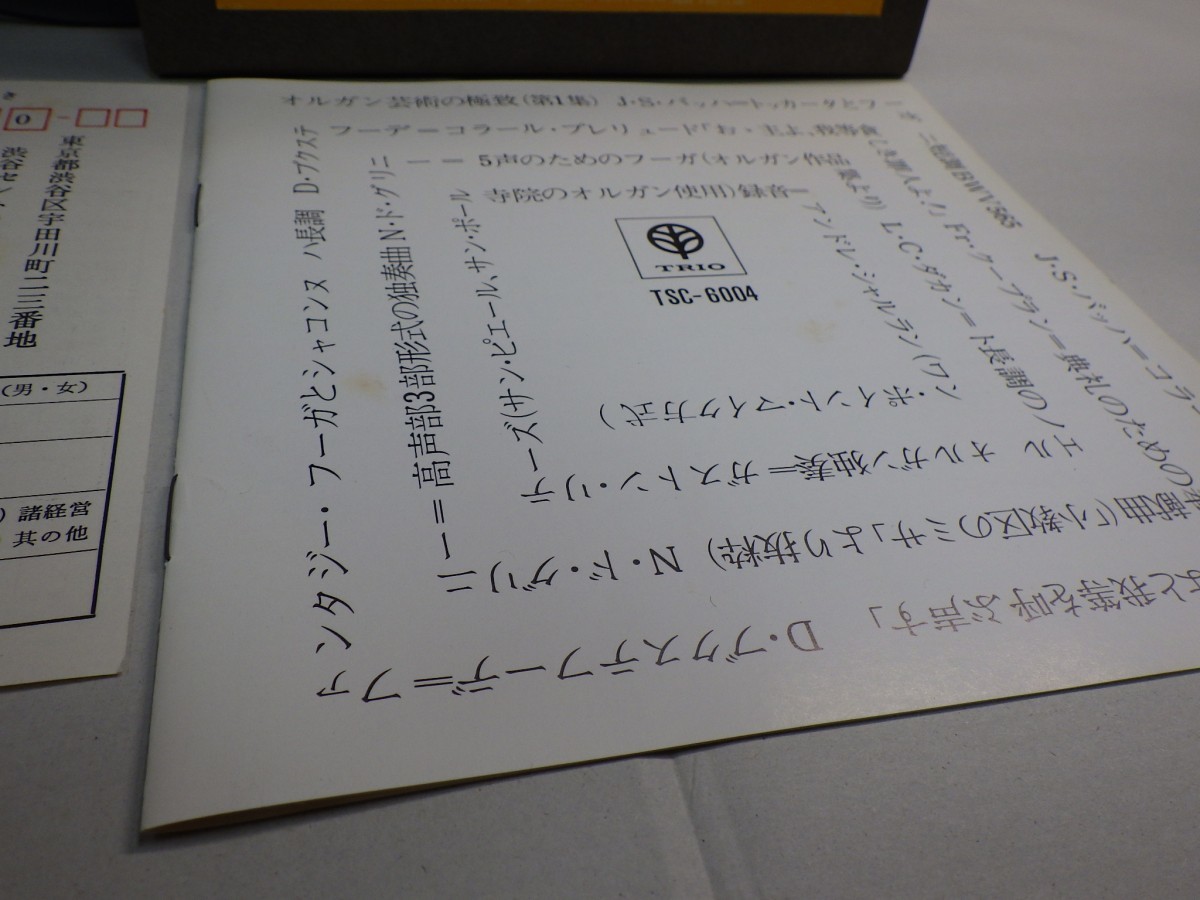 オルガン芸術の極致(第1集) J・S・バッハ=トッカータとフーガ
ニ短調BWV565 J・S・バッハ=コラ
と我等を呼ぶ声す」 D・ブクステフーデ=ファ
ンタジー・フーガとシャコンヌ ハ長調 D・ブクステ
フーデ=コラール・プレリュード「お・主よ、我等貧
しき罪人よ!」 Fr・クープラン=典札のための奉
献曲(「小教区のミサ」より抜粋) N・ド・グリニ
ー=高声部3部形式の独奏曲 N・ド・グリニ
ー=5声のためのフーガ(オルガン作品
集より) L・C・ダカン=ト長調のノ
エル オルガン独奏=ガストン・リテ
ーズ(サン・ピエール、サン・ポール
寺院のオルガン使用)録音=
アンドレ・シャルラン(ワン
・ポイント・マイク方式)
TRIO
TSC-6004
0
東京都渋谷区宇田川町一三番地
渋谷セン
(男・女)
諸経営
其の他